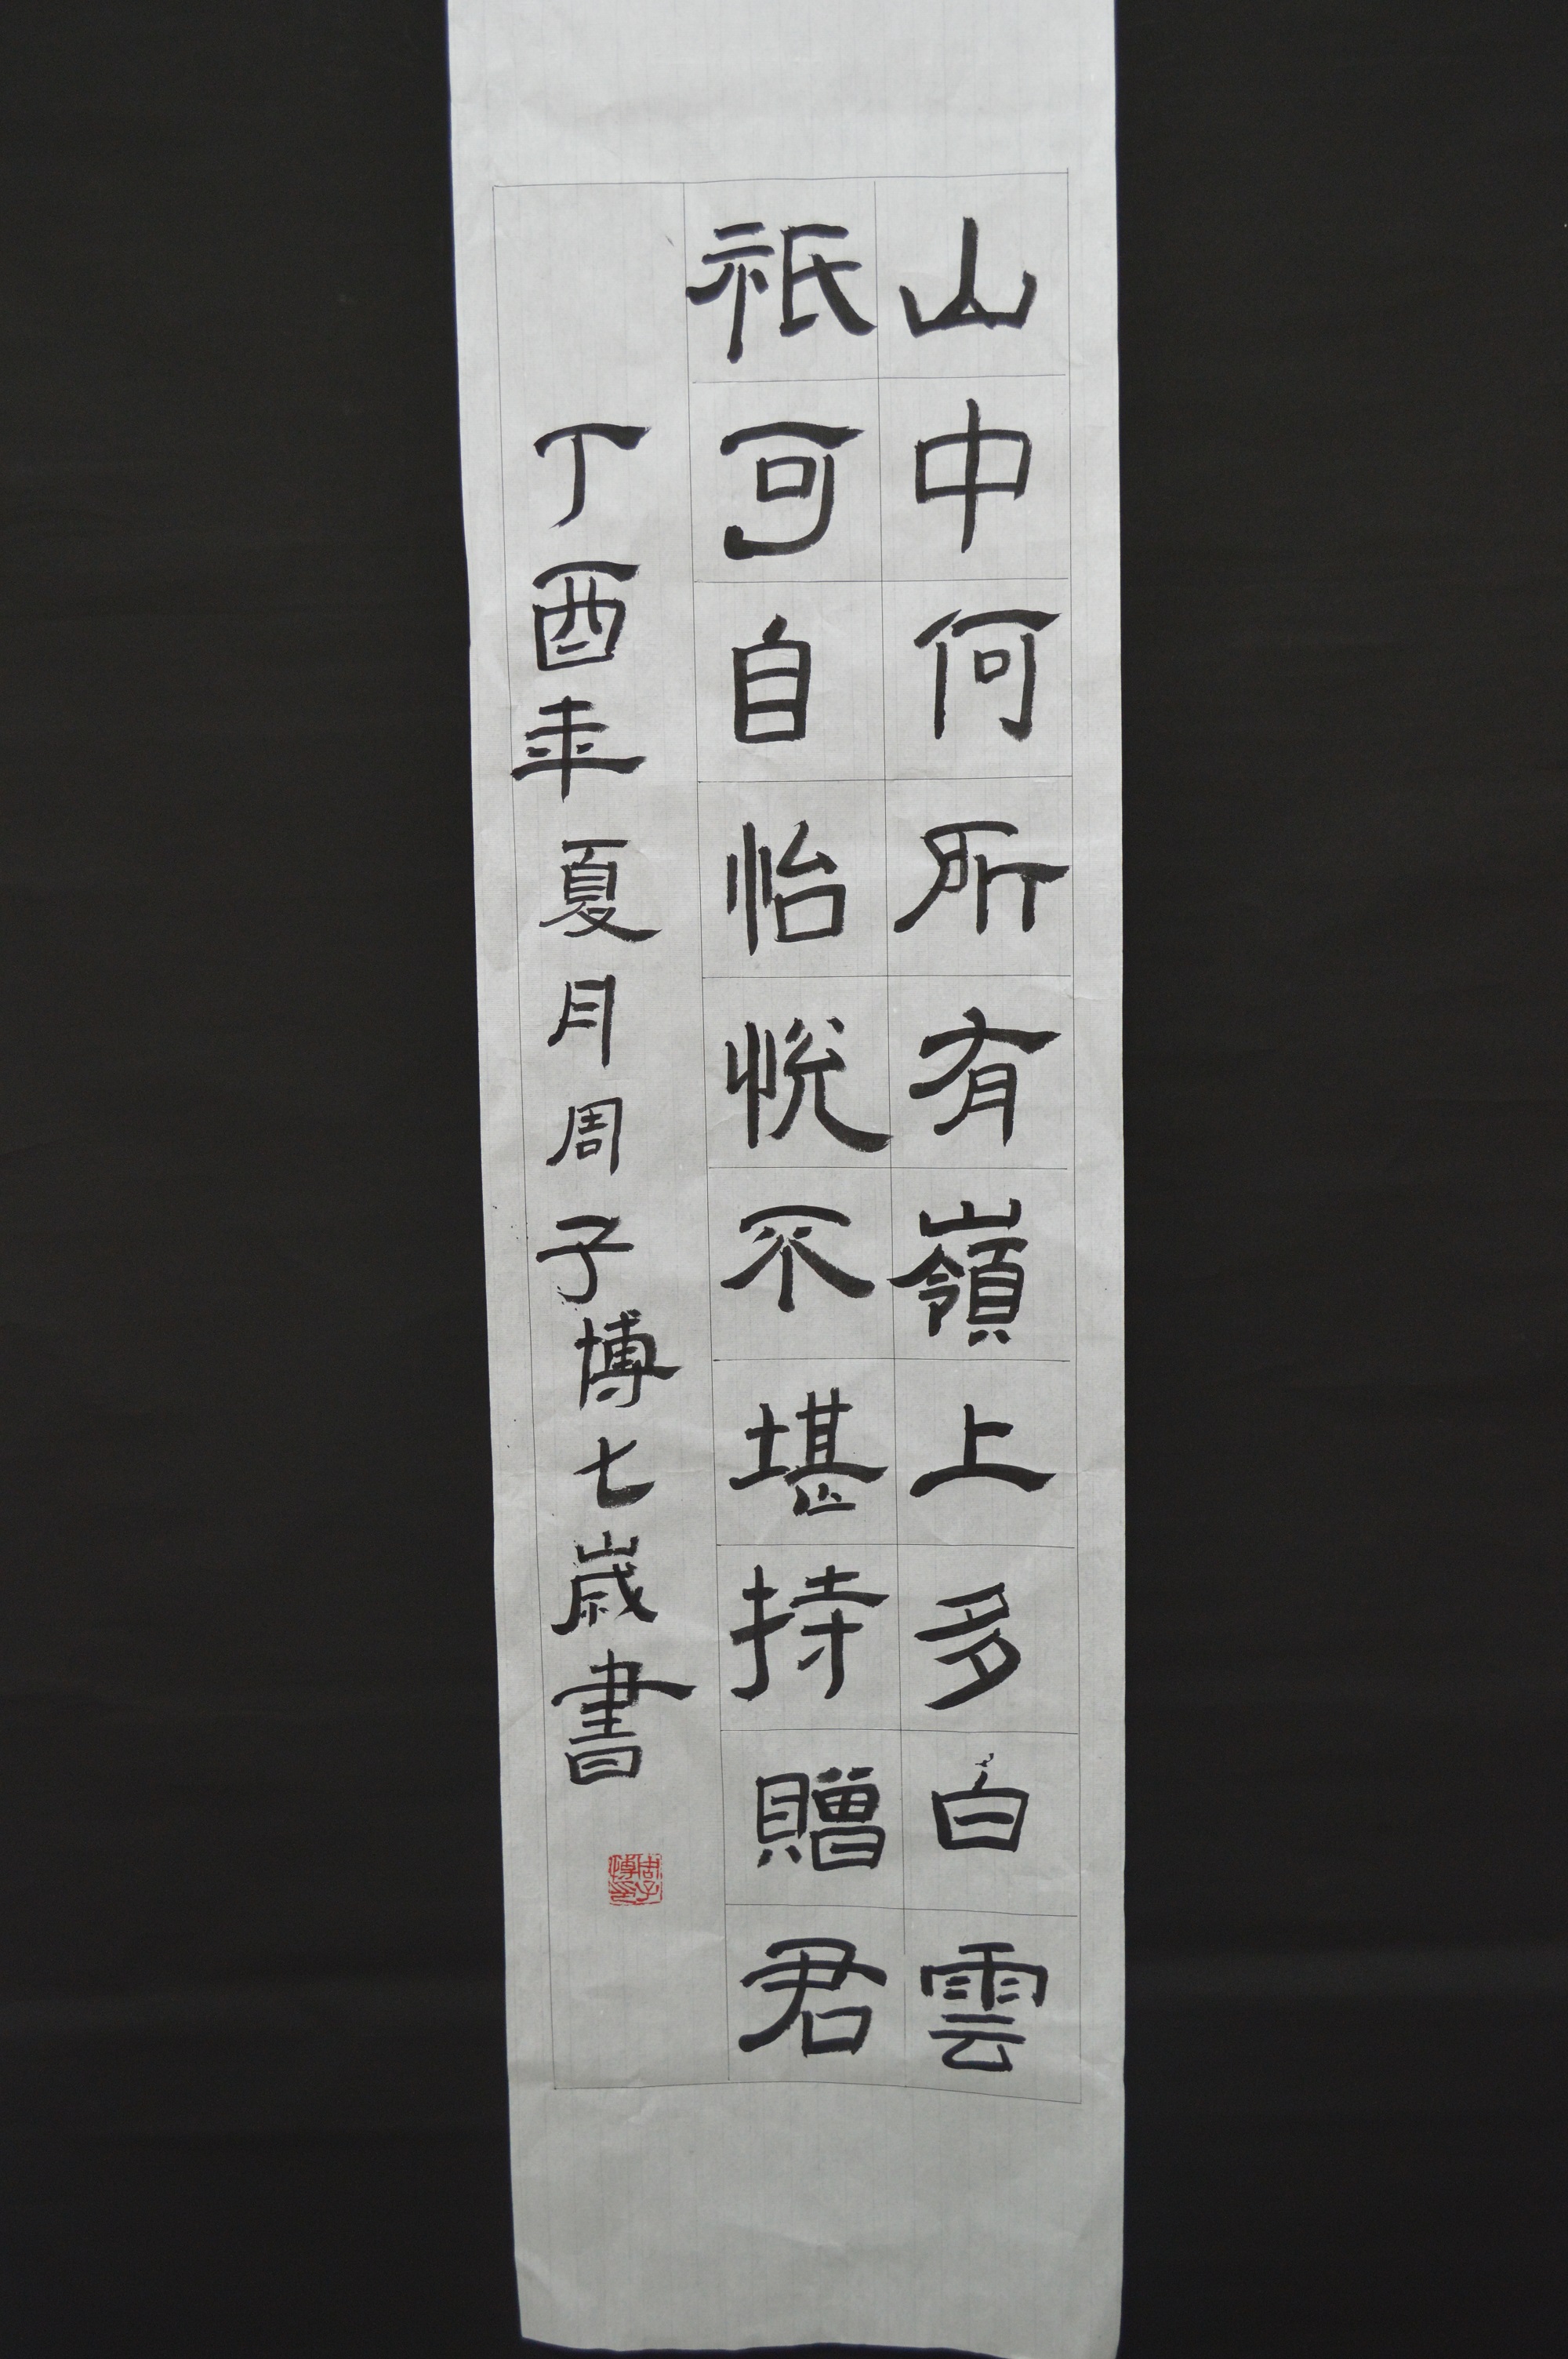 山中何所有嶺上多白雲
祇可自怡悦不堪持贈君
丁酉年夏月周子博七歲書
周子博印